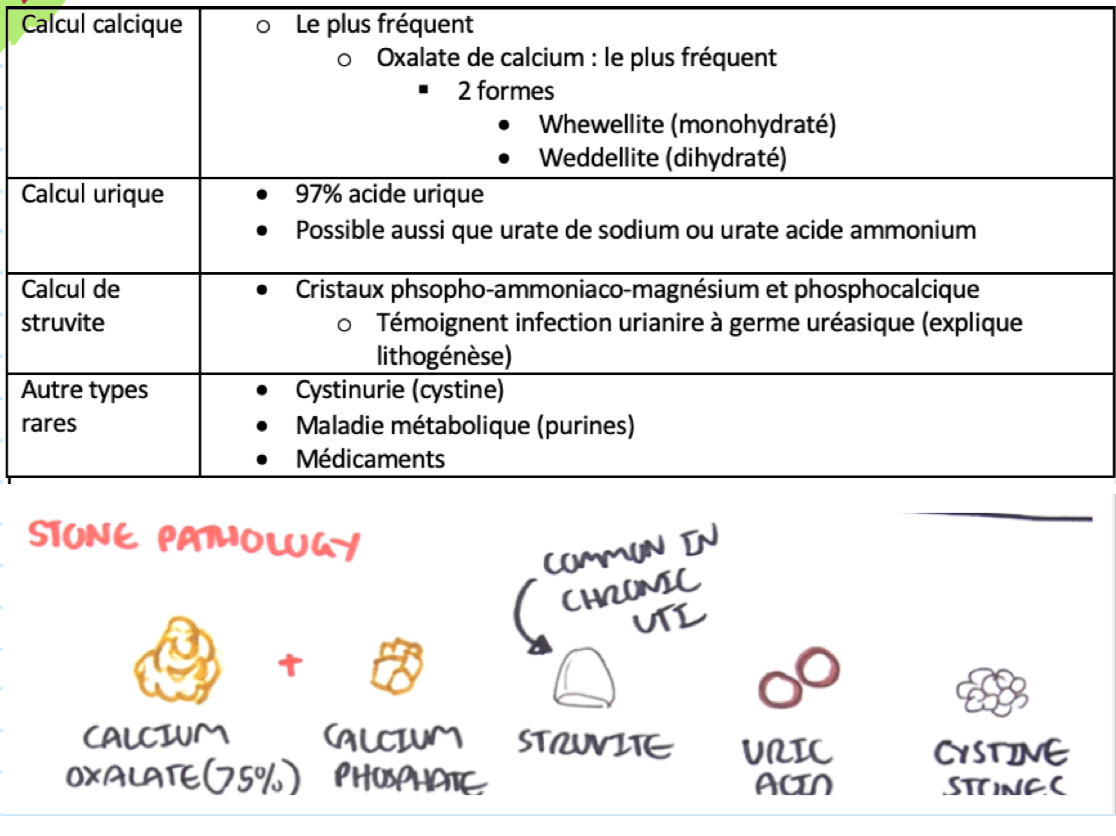 Calcul calcique
o Le plus fréquent
o Oxalate de calcium : le plus fréquent
▪ 2 formes
• Whewellite (monohydraté)
• Weddellite (dihydraté)
Calcul urique
• 97% acide urique
• Possible aussi que urate de sodium ou urate acide ammonium
Calcul de
struvite
• Cristaux phsopho-ammoniaco-magnésium et phosphocalcique
o Témoignent infection urianire à germe uréasique (explique
lithogénèse)
Autre types
rares
• Cystinurie (cystine)
• Maladie métabolique (purines)
• Médicaments
STONE PATHOLOGY
COMMON IN
CHRONIC
UTI
+
CALCIUM
OXALATE (75%)
CALCIUM
PHOSPHATE
STRUVITE
URIC
ACID
CYSTINE
STONES